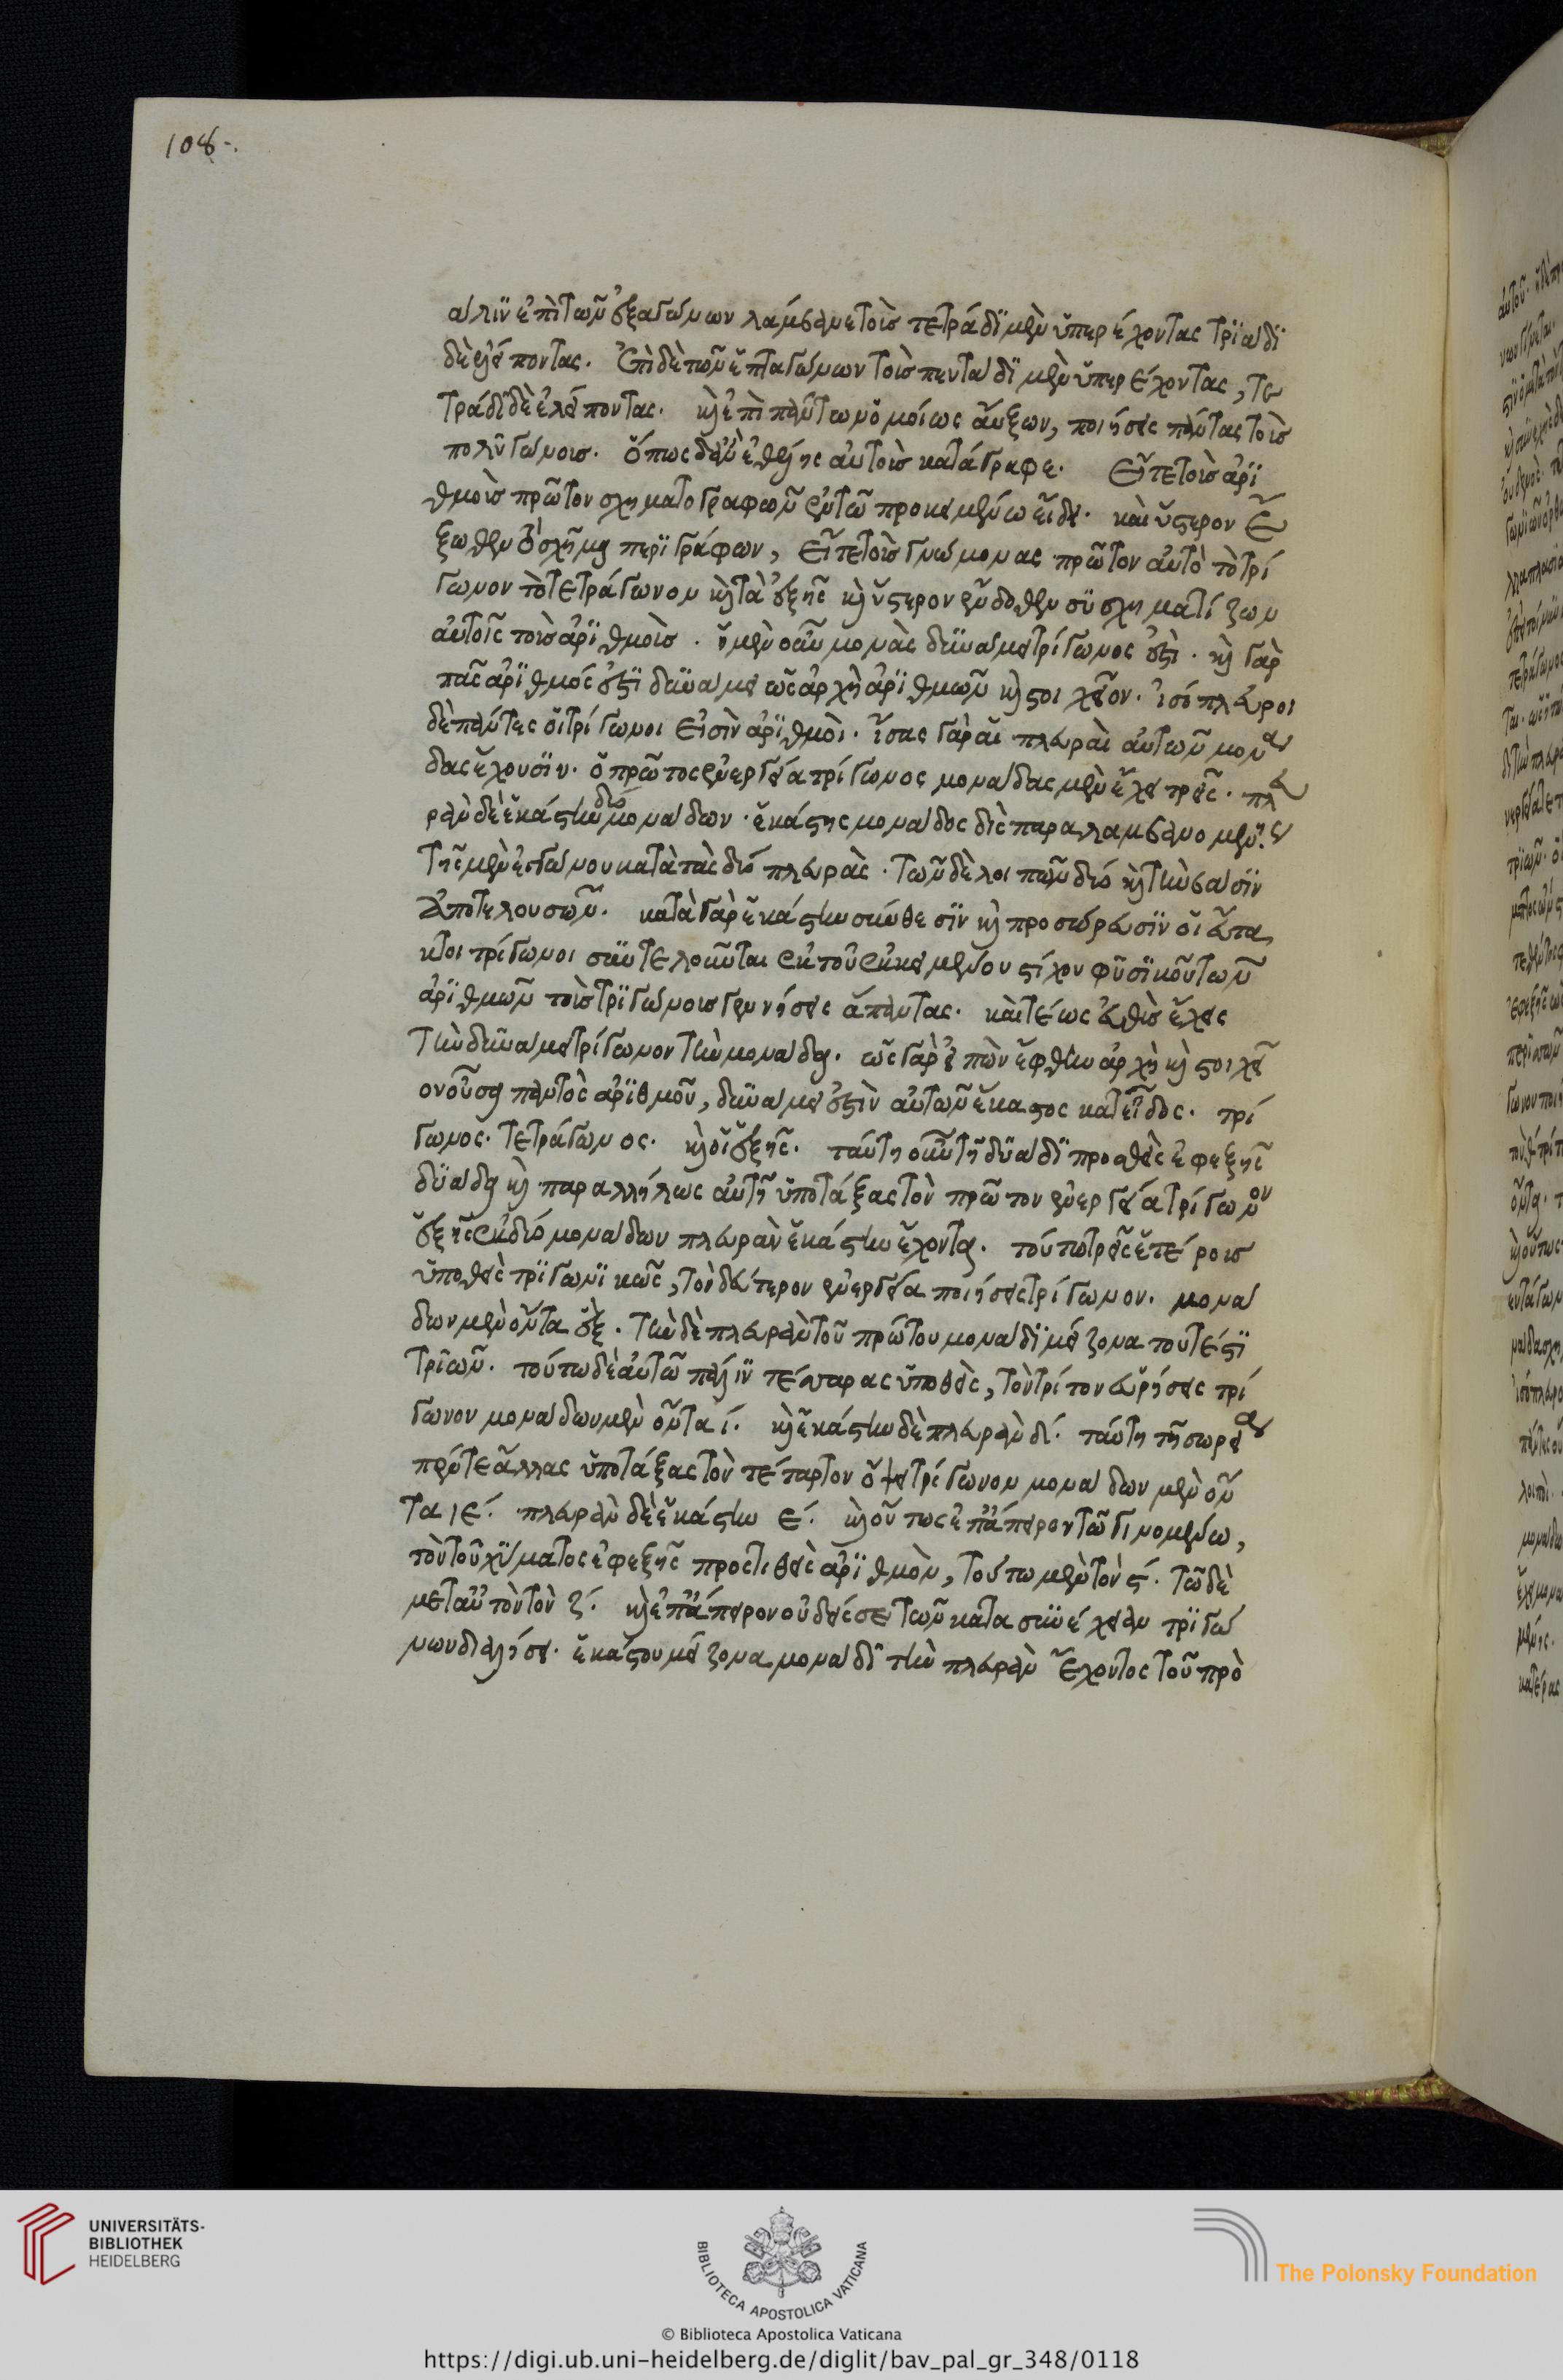 108-.
αλιν ἐπὶ τῶν ἑξαγώνων λάμβανε τοῖς τετράδι μὲν ὑπερέχοντας τριάδι
δὲ λείποντας. Ἐπὶ δὲ τῶν ἑπταγώνων τοῖς πεντάδι μὲν ὑπερέχοντας, τε
τράδι δὲ ἐλλείποντας. καὶ ἐπὶ πάντων ὁμοίως αὔξων, ποιήσεις πάντας τοῖς
πολυγώνοις. ὅπως δ' ἂν ἐθέλῃς αὐτοῖς κατάγραφε. Εἴτε τοῖς ἀρι
θμοῖς πρῶτον σχηματογραφῶν ἐν τῷ προκειμένῳ εἴδει. καὶ ὕστερον ἔ
ξωθεν τὸ σχῆμα περιγράφων, εἴτε τοῖς γνώμονας πρῶτον αὐτὸ τὸ τρί
γωνον τὸ τετράγωνον καὶ τὰ ἑξῆς καὶ ὕστερον ἔνδοθεν συσχηματίζων
αὐτοῖς τοῖς ἀριθμοῖς. ἡ μὲν οὖν μονὰς δυνάμει τρίγωνος ἐστί. καὶ γὰρ
πᾶς ἀριθμός ἐστι δυνάμει ὡς ἀρχὴ ἀριθμῶν καὶ στοιχεῖον. ἰσόπλευροι
δὲ πάντες οἱ τρίγωνοι εἰσὶν ἀριθμοί. ἴσας γὰρ αἱ πλευραὶ αὐτῶν μονα
δας ἔχουσιν. ὁ πρῶτος ἐνεργείᾳ τρίγωνος μονάδας μὲν ἔχει τρεῖς. πλευ
ρὰν δὲ ἑκάστην δύο μονάδων. ἑκάστης μονάδος δὶς παραλαμβανομένης
τῆς μὲν ἐγγώνου κατὰ τὰς δύο πλευρὰς. τῶν δὲ λοιπῶν δύο καὶ τὴν βάσιν
ἀποτελουσῶν. κατὰ γὰρ ἑκάστην σύνθεσιν καὶ προσώρευσιν οἱ εὔτα
κτοι τρίγωνοι συντελοῦνται ἐκ τοῦ ἐκκειμένου στίχου φυσικοῦ τῶν
ἀριθμῶν τοῖς τριγώνοις γεννήσεις ἅπαντας. καὶ τέως εὐθὺς ἔχεις
τὴν δυνάμει τρίγωνον τὴν μονάδα. ὡς γὰρ εἰπὼν ἔφθην ἀρχὴ καὶ στοιχεῖ
ον οὖσα παντὸς ἀριθμοῦ, δυνάμει ἐστὶν αὐτῶν ἕκαστος κατ' εἶδος. τρί
γωνος. τετράγωνος. καὶ οἱ ἑξῆς. ταύτῃ οὖν τῇ δυάδι προσθεὶς ἐφεξῆς
δυάδα καὶ παραλλήλως αὐτῇ ὑποτάξας τὸν πρῶτον ἐνεργείᾳ τρίγωνον
ἕξεις ἐκ δύο μονάδων πλευρὰν ἑκάστην ἔχοντα. τούτῳ τρεῖς ἑτέροις
ὑποθεὶς τριγωνικῶς, τὸν δεύτερον ἐνεργείᾳ ποιήσεις τρίγωνον. μονά
δων μὲν ὄντα ἓξ. τὴν δὲ πλευρὰν τοῦ πρώτου μονάδι μείζονα τουτέστι
τριῶν. τούτῳ δὲ αὐτῷ πάλιν τέσσαρας ὑποθεὶς, τὸν τρίτον εὑρήσεις τρί
γωνον μονάδων μὲν ὄντα ί. καὶ ἑκάστην δὲ πλευρὰν δ́. ταύτῃ τῇ σωρείᾳ
πέντε ἄλλας ὑποτάξας τὸν τέταρτον ὄψει τρίγωνον μονάδων μὲν ὄν
τα ιέ. πλευρὰν δὲ ἑκάστην έ. καὶ οὕτως ἐπ' ἄπειρον τῷ γινομένῳ,
τὸν τοῦ χύματος ἐφεξῆς προστιθεὶς ἀριθμὸν, τούτῳ μὲν τὸν ϛ́. τῷ δὲ
μετ' αὐτὸν τὸν ζ́. καὶ ἐπ' ἄπειρον οὐδείς σε τῶν κατὰ συνέχειαν τριγώ
νων διαλήσει. ἑκάστου μείζονα μονάδι τὴν πλευρὰν ἔχοντος τοῦ πρὸ
UNIVERSITÄTS-
BIBLIOTHEK
HEIDELBERG
BIBLIOTECA APOSTOLICA VATICANA
The Polonsky Foundation
© Biblioteca Apostolica Vaticana
https://digi.ub.uni-heidelberg.de/diglit/bav_pal_gr_348/0118